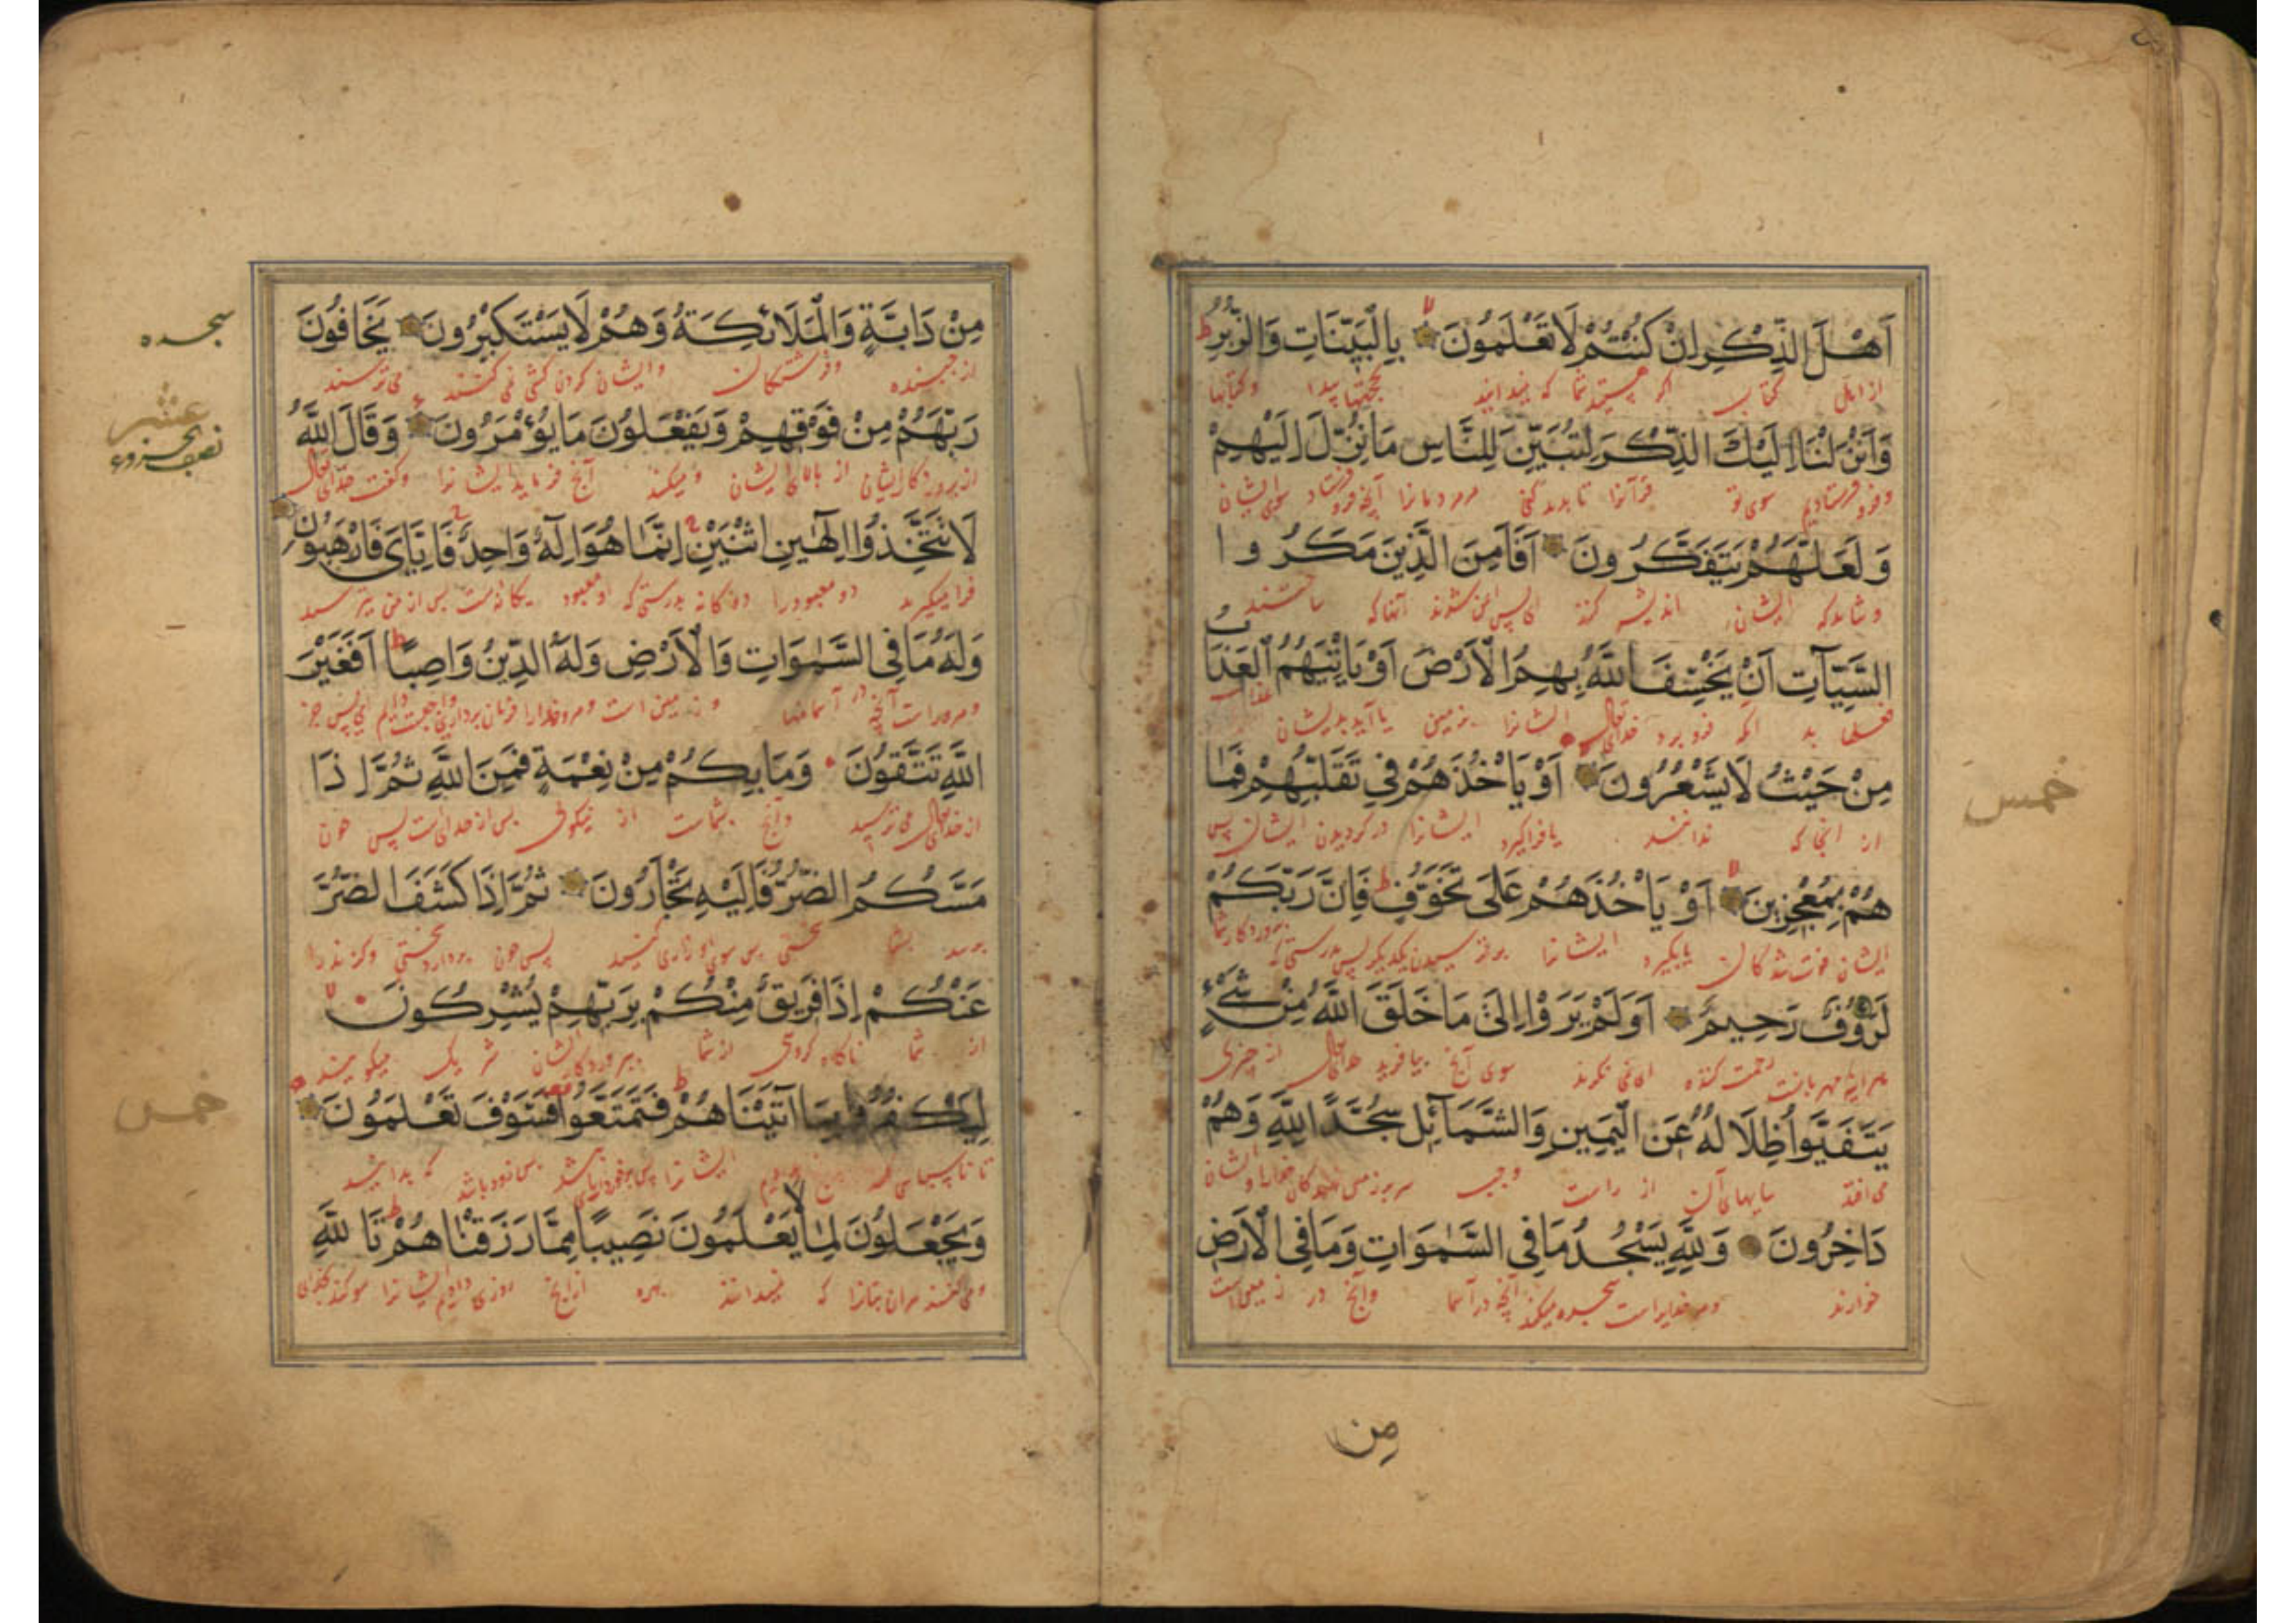 اَهْلَ الذِّكْرِ اِنْ كُنْتُمْ لَا تَعْلَمُونَ بِالْبَيِّنَاتِ وَالزُّبُرِ
از اهل کتاب اگر هستید شما که نمیدانید بحجتها پیدا و کتابها
وَاَنْزَلْنَا اِلَيْكَ الذِّكْرَ لِتُبَيِّنَ لِلنَّاسِ مَا نُزِّلَ اِلَيْهِمْ
و فرو فرستادیم سوی تو قرآنرا تا بیدا کنی مردمانرا آنچه فرو فرستاد سوی ایشان
وَلَعَلَّهُمْ يَتَفَكَّرُونَ اَفَاَمِنَ الَّذِينَ مَكَرُوا
و شاید که ایشان اندیشه کنند ای پس ایمن شدند آنها که ساختند
السَّيِّآتِ اَنْ يَخْسِفَ اللّٰهُ بِهِمُ الْاَرْضَ اَوْ يَاْتِيَهُمُ الْعَذَابُ
بد آنکه فرو برد خدای تعالی ایشانرا زمین یا آید بدیشان عذاب
مِنْ حَيْثُ لَا يَشْعُرُونَ اَوْ يَاْخُذَهُمْ فِي تَقَلُّبِهِمْ فَمَا
از آنجا که ندانند یا فراگیرد ایشانرا در گردیدن ایشان پس
خمس
هُمْ بِمُعْجِزِينَ اَوْ يَاْخُذَهُمْ عَلَى تَخَوُّفٍ فَاِنَّ رَبَّكُمْ
ایشان یا بگیرد ایشانرا بدرستی که پروردگار شما
لَرَؤُفٌ رَحِيمٌ اَوَلَمْ يَرَوْا اِلَى مَا خَلَقَ اللّٰهُ مِنْ شَيْءٍ
مهربانست رحمت کننده ای نمی نگرند سوی آنچ بیافرید خدای تعالی از چیزی
يَتَفَيَّؤُا ظِلَالُهُ عَنِ الْيَمِينِ وَالشَّمَآئِلِ سُجَّدًا لِلّٰهِ وَهُمْ
می افتد سایهای آن از راست و چپ ایشان
دَاخِرُونَ وَلِلّٰهِ يَسْجُدُ مَا فِي السَّمٰوَاتِ وَمَا فِي الْاَرْضِ
خوارند و مر خدایراست سجده میکند آنچه در آسما و آنچ در زمین است
مِن
مِنْ دَابَّةٍ وَالْمَلَائِكَةُ وَهُمْ لَا يَسْتَكْبِرُونَ يَخَافُونَ
سجده
از جنبنده و فرشتگان و ایشان گردن کشی نمی کنند می ترسند
عشر
رَبَّهُمْ مِنْ فَوْقِهِمْ وَيَفْعَلُونَ مَا يُؤْمَرُونَ وَقَالَ اللّٰهُ
نصف الجزو
از پروردگار ایشان از بالای ایشان و میکنند آنچ فرماید ایشانرا و گفت خدای تعالی
لَا تَتَّخِذُوا اِلٰهَيْنِ اثْنَيْنِ اِنَّمَا هُوَ اِلٰهٌ وَاحِدٌ فَاِيَّايَ فَارْهَبُونِ
فرا مگیرید دو معبود را دوگانه بدرستی که او معبود یگانه است پس از من بترسید
وَلَهُ مَا فِي السَّمٰوَاتِ وَالْاَرْضِ وَلَهُ الدِّينُ وَاصِبًا اَفَغَيْرَ
و مر وراست آنچه در آسمانها و زمین است فرمان برداری دایم ای پس جز
اللّٰهِ تَتَّقُونَ وَمَا بِكُمْ مِنْ نِعْمَةٍ فَمِنَ اللّٰهِ ثُمَّ اِذَا
از خدای تعالی می ترسید و آنچ بشماست از نیکوی پس از خدایست پس چون
مَسَّكُمُ الضُّرُّ فَاِلَيْهِ تَجْاَرُونَ ثُمَّ اِذَا كَشَفَ الضُّرَّ
برسد بشما سختی پس سوی او زاری کنید پس چون بردارد سختی و گزند را
عَنْكُمْ اِذَا فَرِيقٌ مِنْكُمْ بِرَبِّهِمْ يُشْرِكُونَ
از شما ناگاه گروهی از شما بپروردگار ایشان شریک میگویند
لِيَكْفُرُوا بِمَا آتَيْنَاهُمْ فَتَمَتَّعُوا فَسَوْفَ تَعْلَمُونَ
خمس
تا ناسپاسی ایشانرا پس زود باشد که بدانید
وَيَجْعَلُونَ لِمَا لَا يَعْلَمُونَ نَصِيبًا مِمَّا رَزَقْنَاهُمْ تَاللّٰهِ
و می کنند مر آن بتانرا که نمیدانند بهره از آنچ روزی دادیم ایشانرا سوگند بخدای